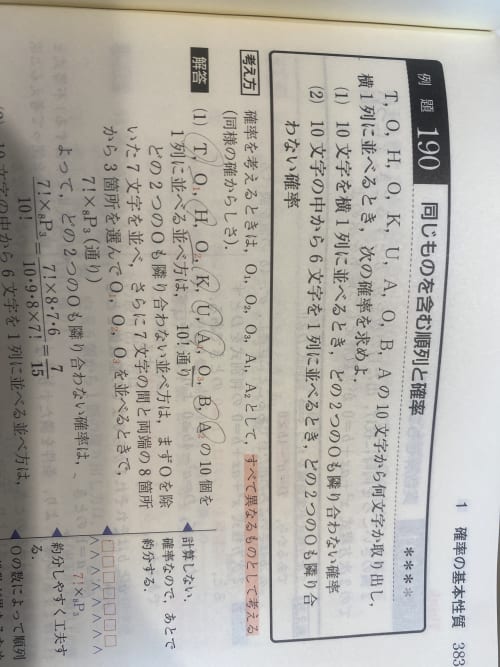 1 確率の基本性質 383
例題 190 同じものを含む順列と確率 ****
T, O, H, O, K, U, A, O, B, A の10文字から何文字か取り出し,
横1列に並べるとき, 次の確率を求めよ.
(1) 10文字を横1列に並べるとき, どの2つのOも隣り合わない確率
(2) 10文字の中から6文字を1列に並べるとき, どの2つのOも隣り合
わない確率
考え方 確率を考えるときは, O₁, O₂, O₃, A₁, A₂ として, すべて異なるものとして考える
(同様の確からしさ).
解答 (1) T, O₁, H, O₂, K, U, A₁, O₃, B, A₂ の10個を
1列に並べる並べ方は, 10! 通り
どの2つのOも隣り合わない並べ方は, まずOを除
いた7文字を並べ, さらに7文字の間と両端の8箇所
から3箇所を選んで O₁, O₂, O₃ を並べるときで,
7!×₈P₃ (通り)
よって, どの2つのOも隣り合わない確率は,
7!×₈P₃/10! = 7!×8・7・6/10・9・8×7! = 7/15
10文字の中から6文字を1列に並べる並べ方は,
◀計算しない.
確率なので, あとで
約分する.
∧□∧□∧□∧□∧□∧□∧□∧
7!×₈P₃
◀約分しやすく工夫す
る.
◀Oの数によって順列